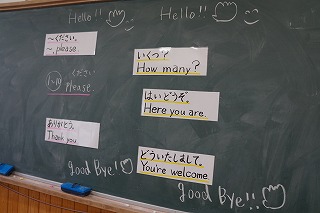 Hello!!
Hello!!
～ください。
～, please.
1～10 ください
please
ありがとう。
Thank you.
good Bye!
いくつ?
How many?
はいどうぞ。
Here you are.
どういたしまして。
You're welcome.
good Bye!!